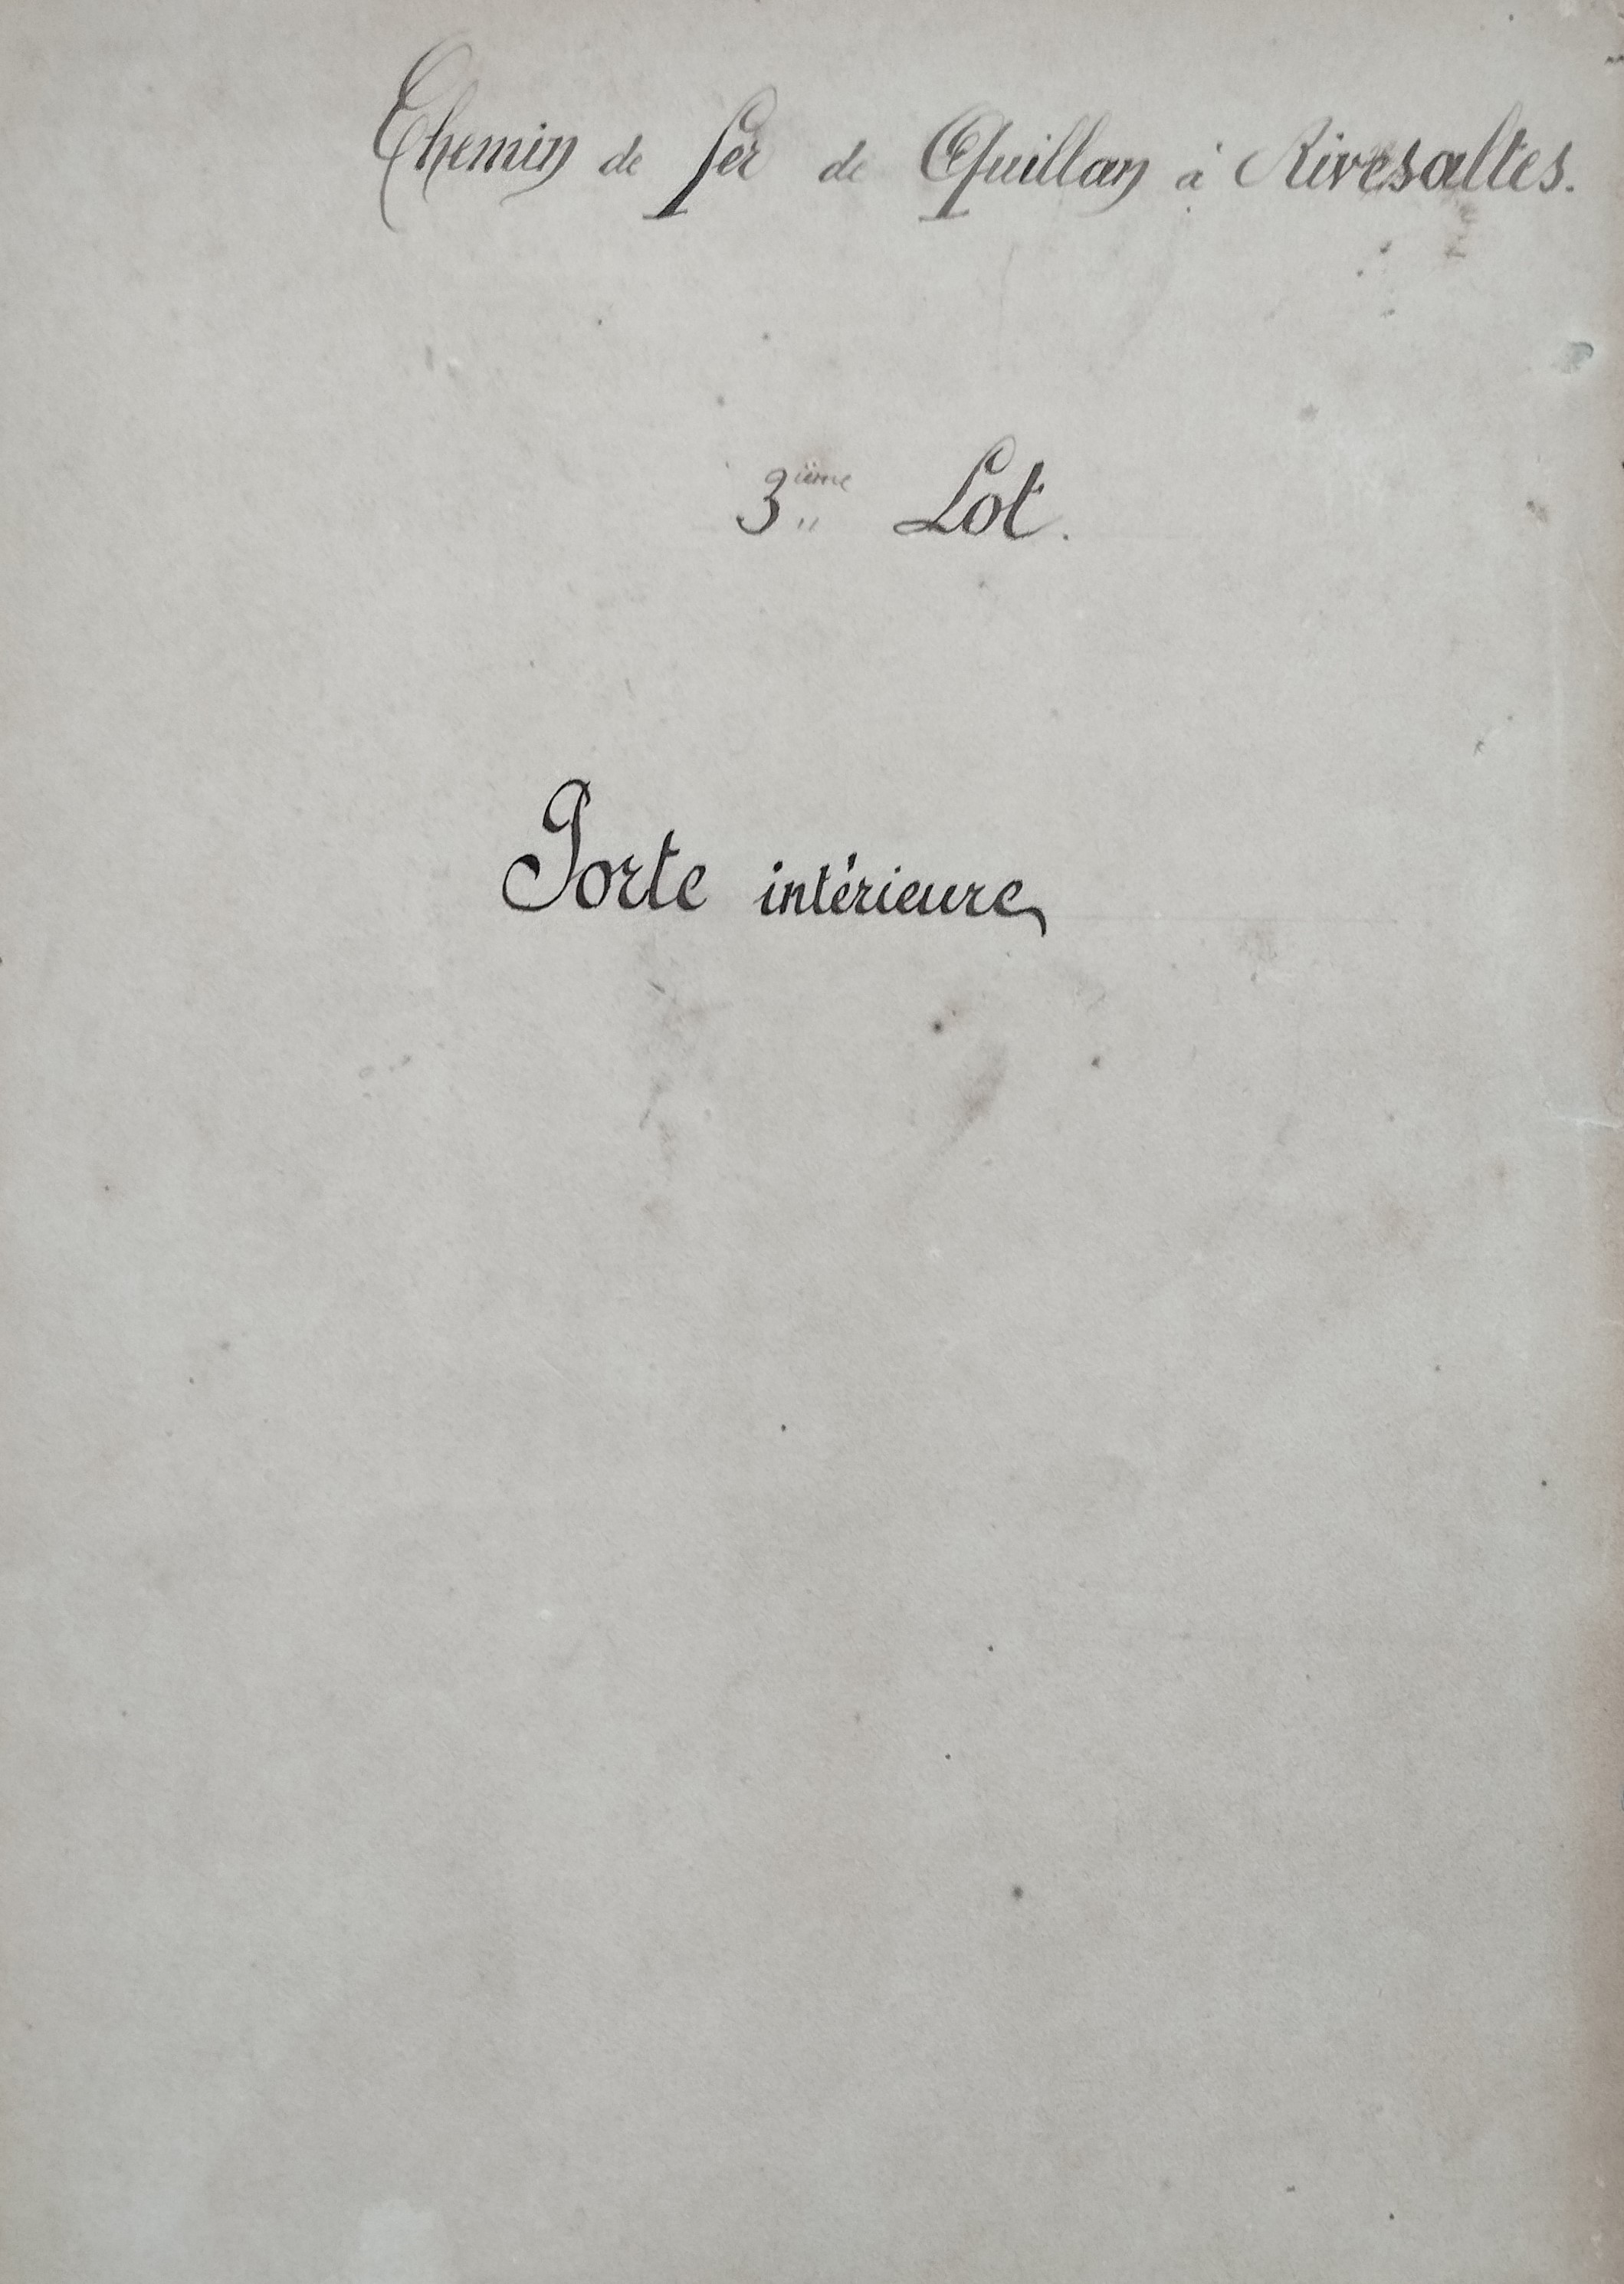 Chemin de fer de Quillan à Rivesaltes.
3ième Lot.
Porte intérieure